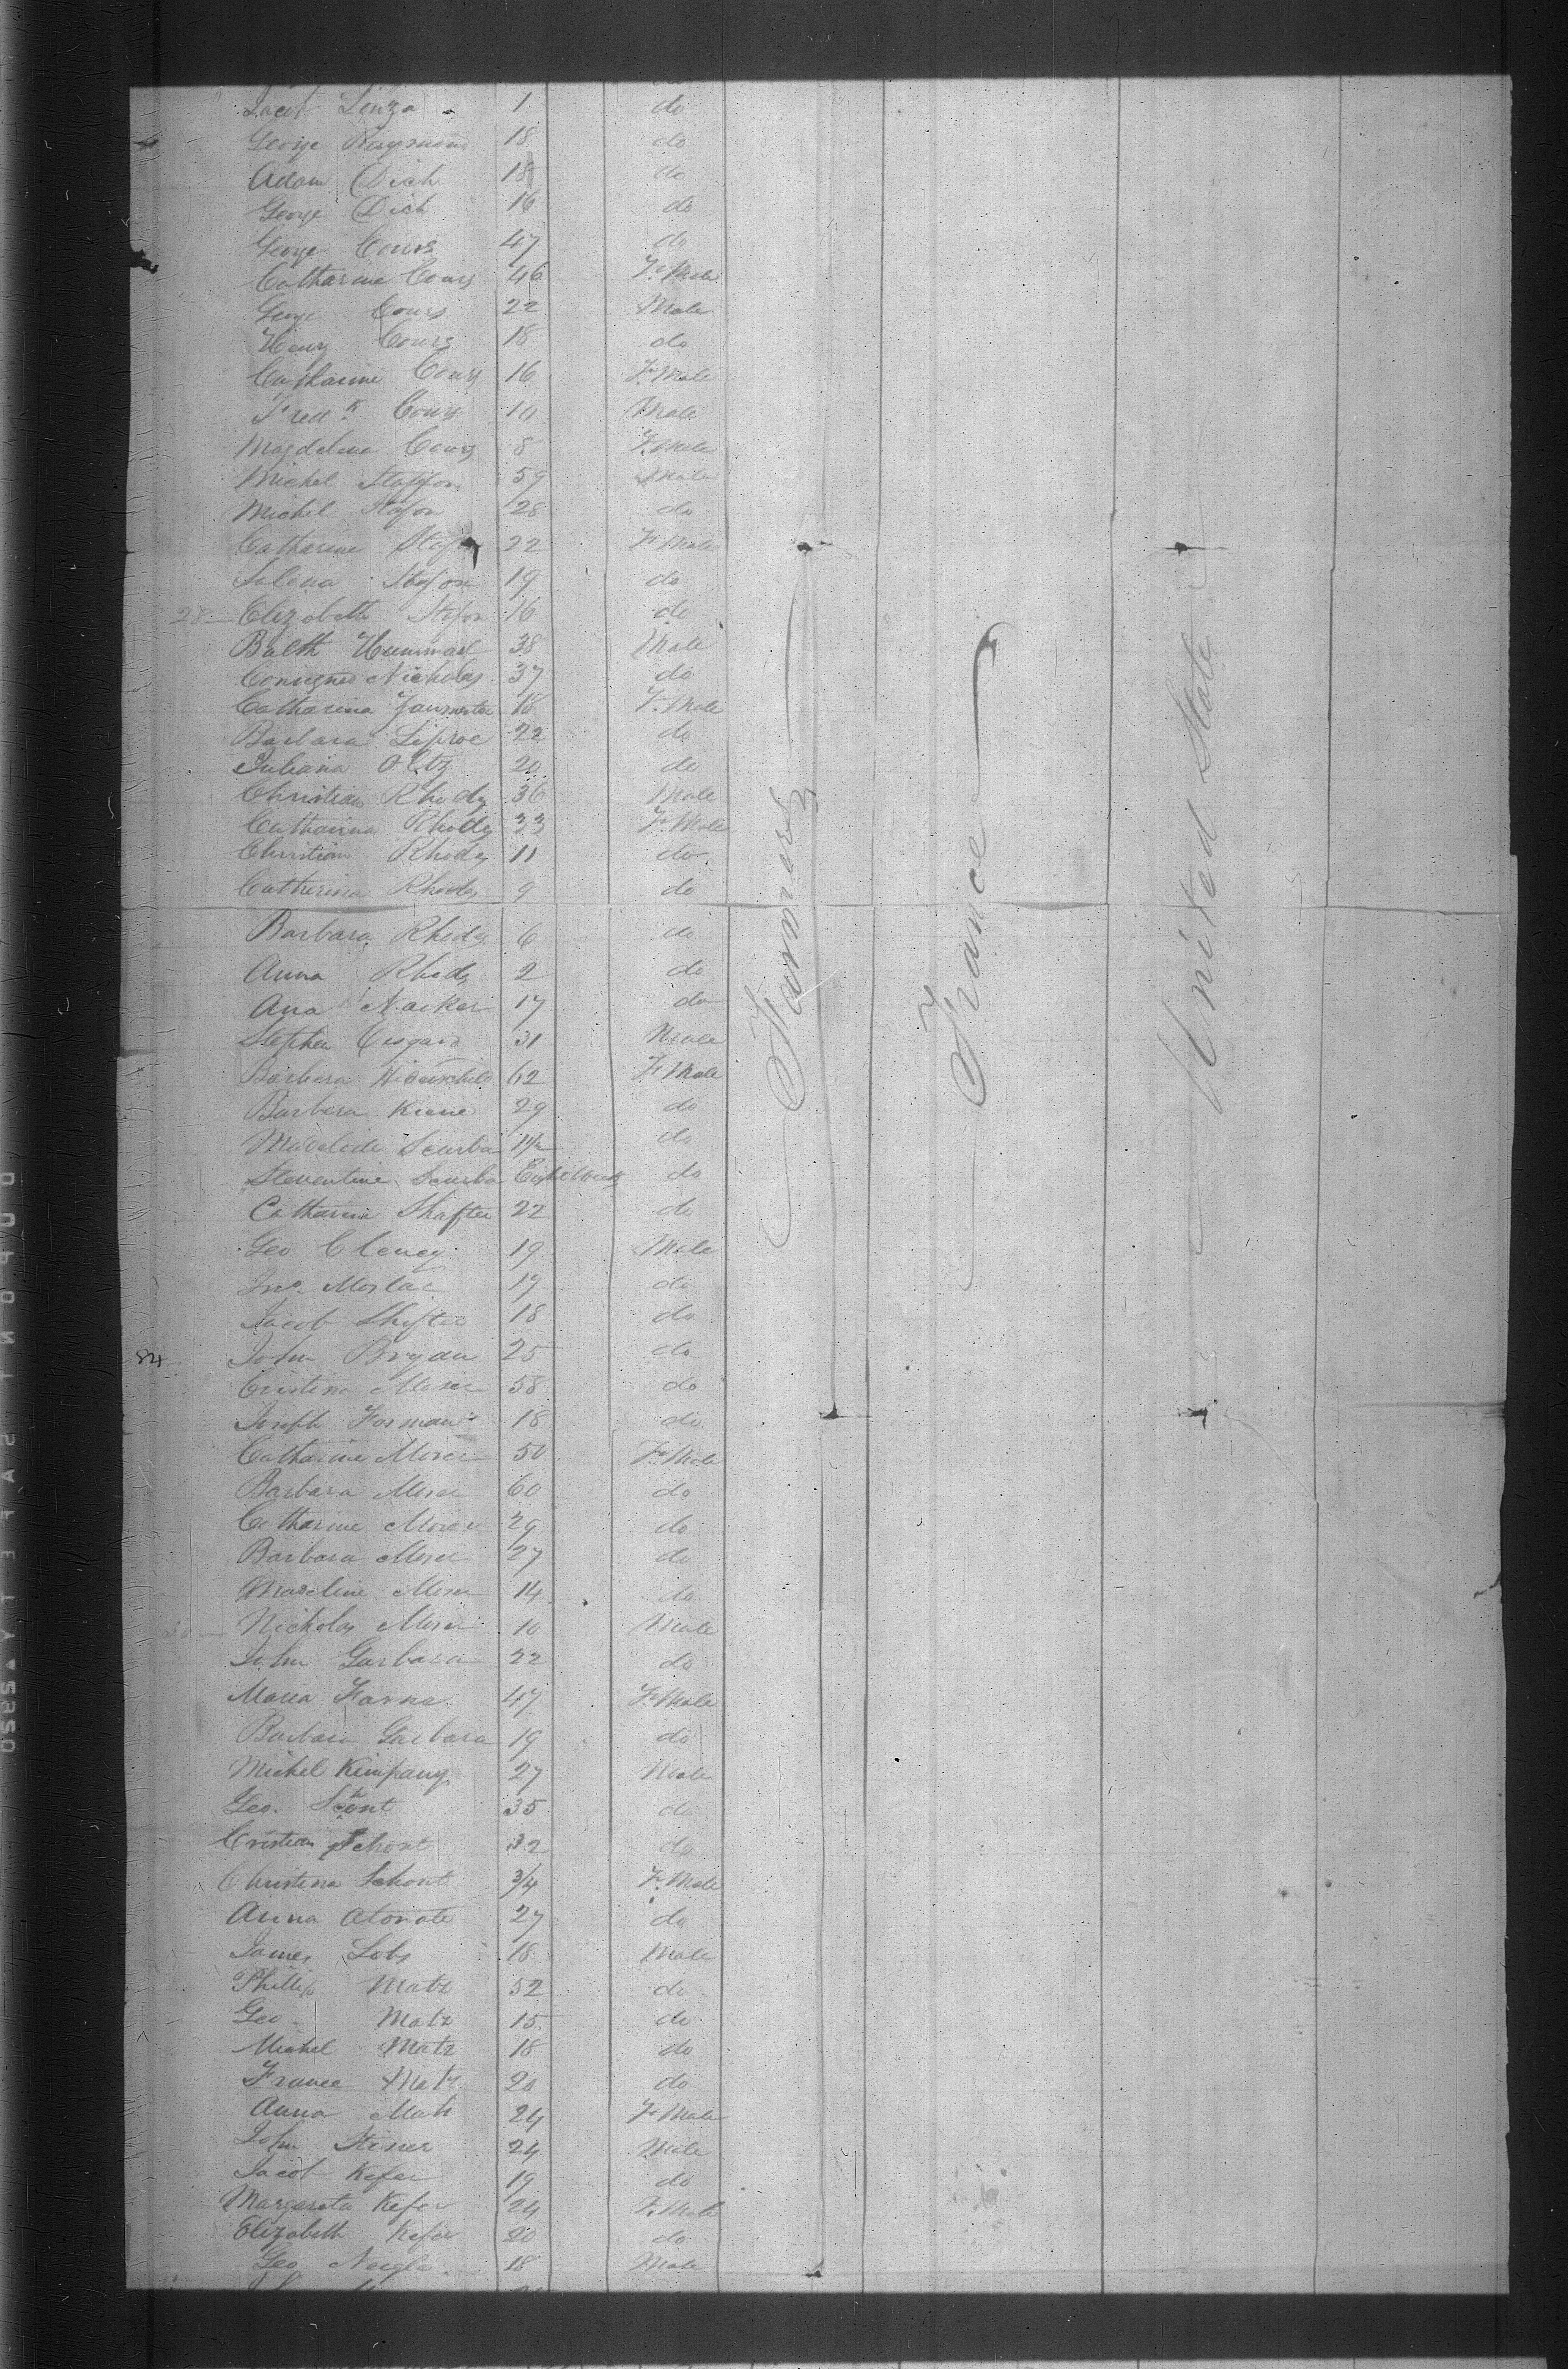 Jacob Linza 1 do
George Raymond 18 do
Adam Dich 18 do
George Dich 16 do
George Cours 47 do
Catharine Cours 46 F. Male
George Cours 22 Male
Henry Cours 18 do
Catharine Cours 16 F. Male
Fredk Cours 10 Male
Magdalena Cours 8 F. Male
Michel Staffon 59 Male
Michel Stafon 28 do
Catharine 22 F. Male
Salena Stafon 19 do
28 Elizabeth Stafon 16 do
Balth Hummel 38 Male
Nicholas 37 do
Catharina 18 F. Male
Barbara Liproe 22 do
Juliana Oltz 20 do
Christian Rhody 36 Male
Catharina Rhody 33 F. Male
Christian Rhody 11 do
Catherina Rhody 9 do
Barbara Rhody 6 do
Anna Rhody 2 do
Ana Nacker 17 do
Stephen 31 Male
Barbera 62 F. Male
Barbera Kiene 29 do
Scurba 1 1/2 do
Scurba Eight Weeks do
Catharin Shafter 22 do
Geo Clency 19 Male
Jno. Morlac 17 do
Jacob Shifter 18 do
84 John Bryan 25 do
Cristian Moser 58 do
Joseph Forman 18 do
Catharine Moser 50 F. Male
Barbara Moser 60 do
Catharine Moser 29 do
Barbara Moser 27 do
Madeline Moser 14 do
30 Nicholas Moser 10 Male
John Garbara 22 do
Maria Farne 47 F. Male
Barbara Garbara 19 do
Michel Kimpany 27 Male
Geo. Schont 35 do
Cristian Schont 32 do
Christina Schont 3/4 F. Male
Anna Atonote 27 do
James Lobs 18 Male
Phillip Matz 52 do
Geo Matz 15 do
Michel Matz 18 do
France Matz 20 do
Anna Matz 24 F. Male
John Stiner 24 Male
Jacob Kefer 19 do
Margareta Kefer 24 F. Male
Elizabeth Kefer 20 do
Geo 18 Male
Farmers
France
United State